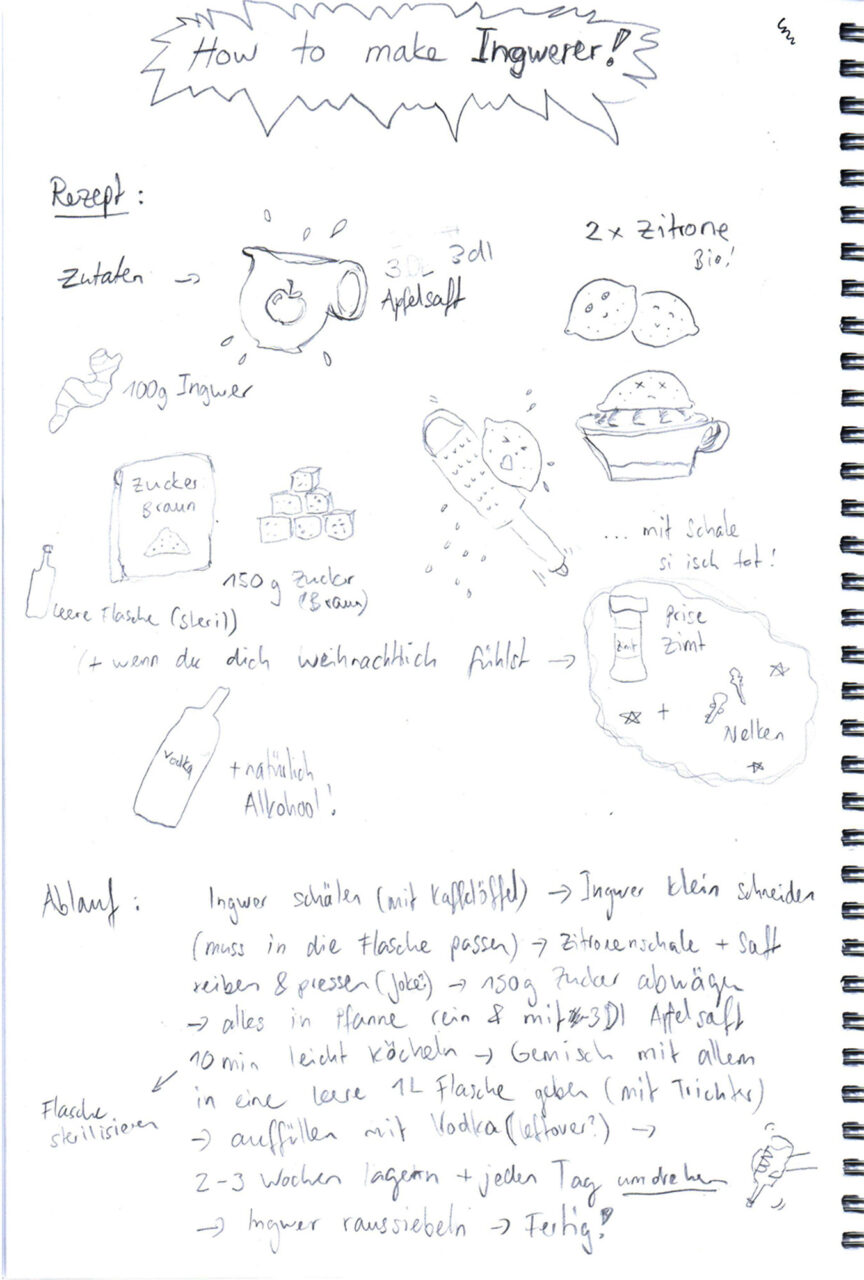 How to make Ingwerer!
Rezept:
Zutaten →
3DL 3dl
Apfelsaft
2x Zitrone
Bio!
100g Ingwer
Zucker
Braun
150g Zucker
(Braun)
... mit Schale
si isch tot!
leere Flasche (steril)
+ wenn du dich weihnachtlich fühlst →
Prise
Zimt
Zimt
+
Nelken
Vodka
+ natürlich
Alkohool!
Ablauf: Ingwer schälen (mit Kaffelöffel) → Ingwer klein schneiden
(muss in die Flasche passen) → Zitronenschale + Saft
reiben & pressen (joke?) → 150g Zucker abwägen
→ alles in Pfanne rein & mit 3Dl Apfelsaft
10 min leicht köcheln → Gemisch mit allem
in eine leere 1L Flasche geben (mit Trichter)
Flasche
sterilisieren
→ auffüllen mit Vodka (leftover?) →
2-3 Wochen lagern + jeden Tag umdrehen
→ Ingwer raussiebeln → Fertig!